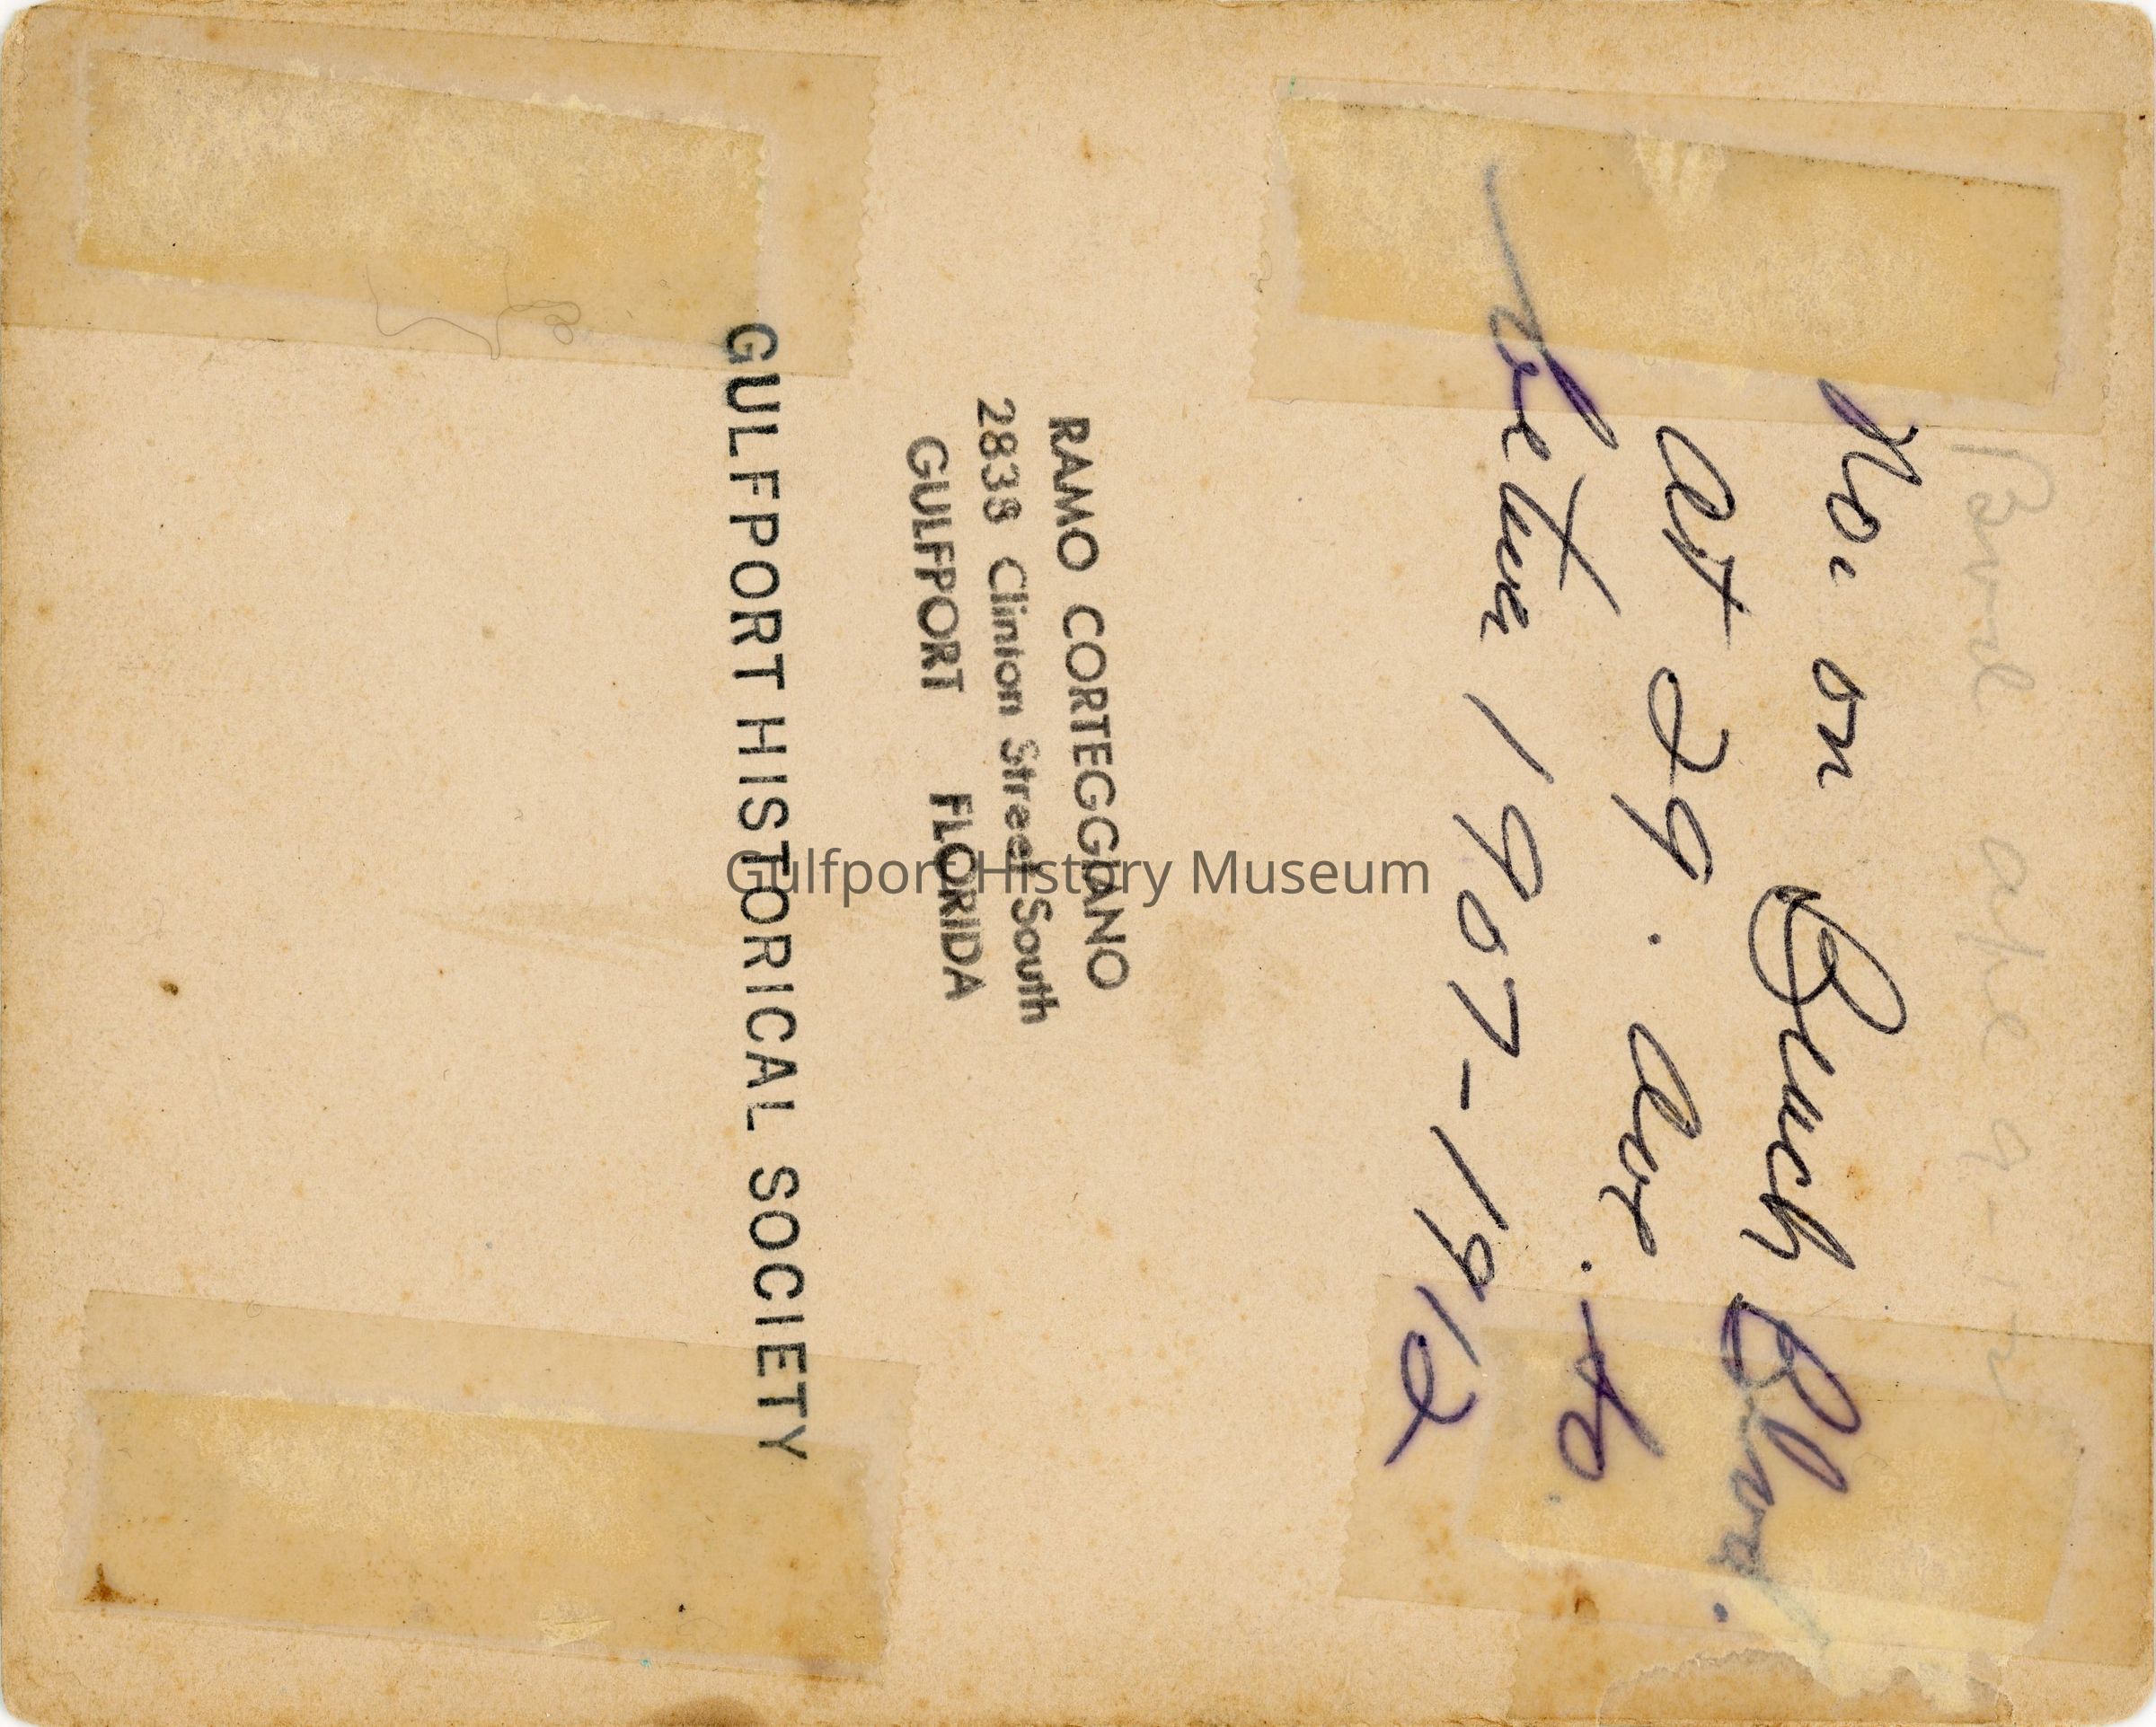 No. on Beach Blvd.
at 29. Ave. So.
between 1907-1912
RAMO CORTEGGIANO
2838 Clinton Street South
GULFPORT FLORIDA
GULFPORT HISTORICAL SOCIETY
Gulfport History Museum